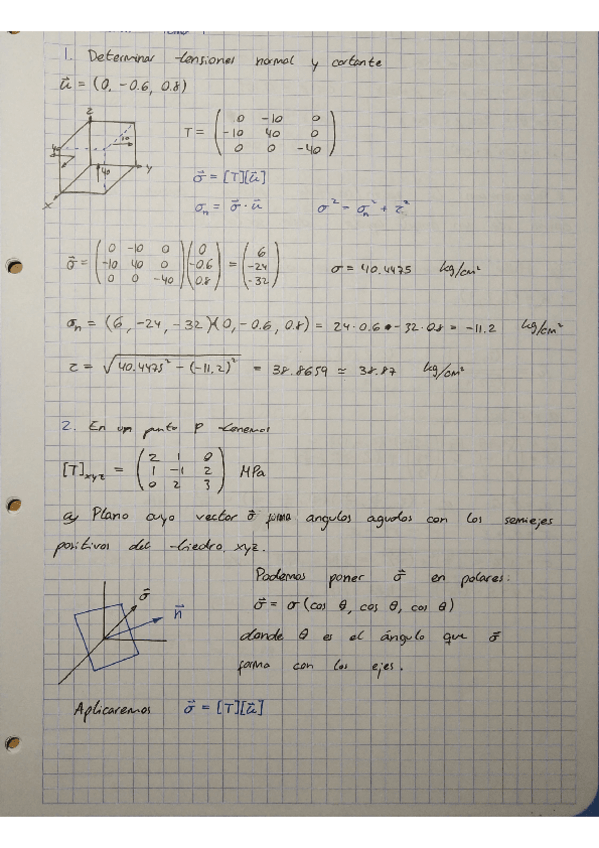 1. Determinar tensiones normal y cortante
ū = (0, -0.6, 0.8)
z
40
10
y
40
x
T = ( 0 -10 0
-10 40 0
0 0 -40 )
σ⃗ = [T][ū]
σn = σ⃗ · ū σ² = σn² + τ²
σ⃗ = ( 0 -10 0 ) ( 0 ) ( 6 )
( -10 40 0 ) ( -0.6 ) = ( -24 ) σ = 40.4475 kg/cm²
( 0 0 -40 ) ( 0.8 ) ( -32 )
σn = (6, -24, -32)(0, -0.6, 0.8) = 24·0.6 + -32·0.8 = -11.2 kg/cm²
τ = √(40.4475² - (-11.2)²) = 38.8659 ≈ 38.87 kg/cm²
2. En un punto P tenemos
[T]xyz = ( 2 1 0
1 -1 2
0 2 3 ) MPa
a) Plano cuyo vector σ⃗ forma angulos agudos con los semiejes
positivos del triedro xyz.
Podemos poner σ⃗ en polares:
σ⃗ = σ (cos θ, cos θ, cos θ)
donde θ es el ángulo que σ⃗
forma con los ejes.
σ⃗
n⃗
Aplicaremos σ⃗ = [T][ū]